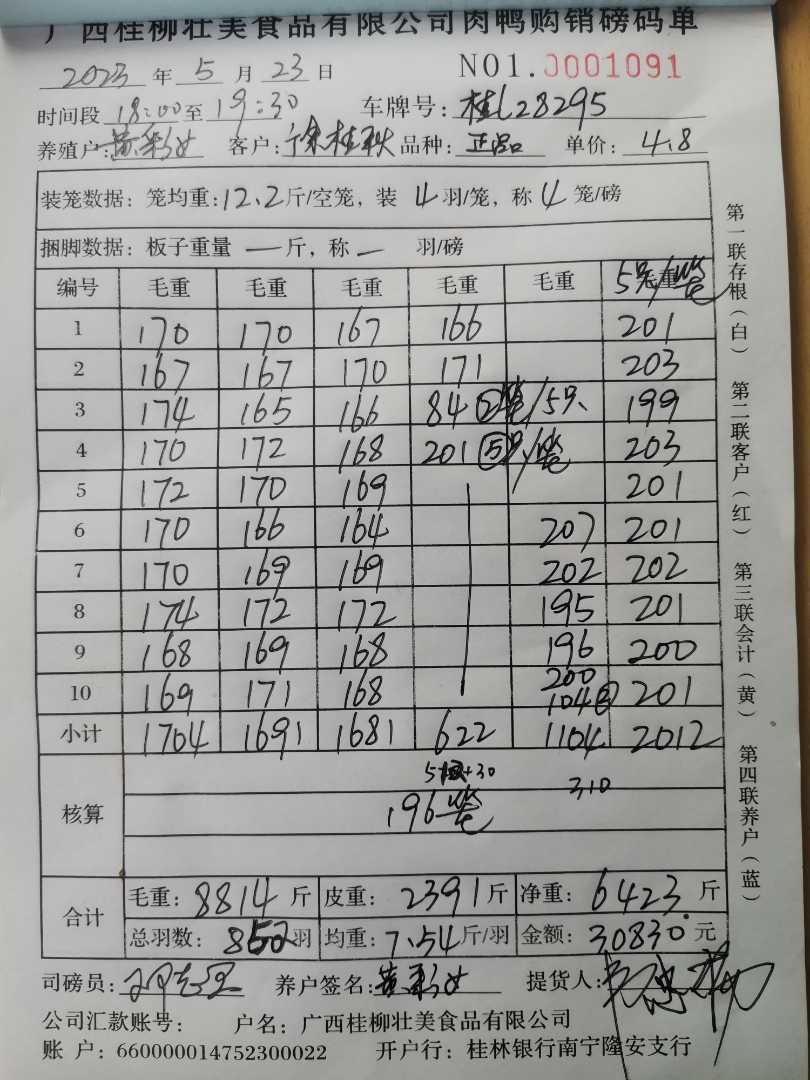 广西桂柳壮美食品有限公司肉鸭购销磅码单
2023 年 5 月 23 日 NO1.0001091
时间段 18:00 至 19:30 车牌号: 桂L28295
养殖户: 黄彩女 客户: 徐桂秋 品种: 正品 单价: 4.8
装笼数据: 笼均重: 12.2 斤/空笼, 装 4 羽/笼, 称 4 笼/磅
捆脚数据: 板子重量 — 斤, 称 — 羽/磅
编号 毛重 毛重 毛重 毛重 毛重 毛重 5只/笼
1 170 170 167 166 201
2 167 167 170 171 203
3 174 165 166 84 ②笼/5只 199
4 170 172 168 201 ⑤只/笼 203
5 172 170 169 201
6 170 166 164 207 201
7 170 169 169 202 202
8 174 172 172 195 201
9 168 169 168 196 200
200
10 169 171 168 104 201
小计 1704 1691 1681 622 1104 2012
+30 310
核算 196笼
合计 毛重: 8814 斤 皮重: 2391 斤 净重: 6423 斤
总羽数: 852 羽 均重: 7.54 斤/羽 金额: 30830 元
司磅员: 养户签名: 黄彩女 提货人:
公司汇款账号: 户名: 广西桂柳壮美食品有限公司
账 户: 660000014752300022 开户行: 桂林银行南宁隆安支行
第一联存根(白) 第二联客户(红) 第三联会计(黄) 第四联养户(蓝)